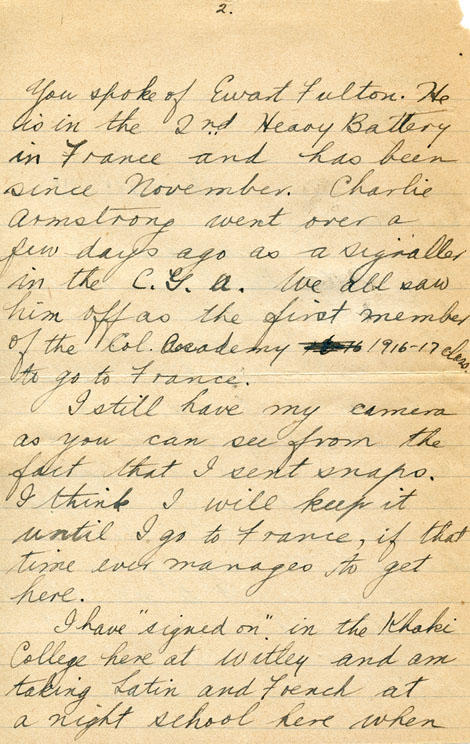 2.
You spoke of Ewart Fulton. He
is in the 2nd Heavy Battery
in France and has been
since November. Charlie
Armstrong went over a
few days ago as a signaller
in the C. G. A. We all saw
him off as the first member
of the Col. Academy 1916-17 class.
to go to France.
I still have my camera
as you can see from the
fact that I sent snaps.
I think I will keep it
until I go to France, if that
time ever manages to get
here.
I have "signed on" in the Khaki
College here at Witley and am
taking Latin and French at
a night school here when